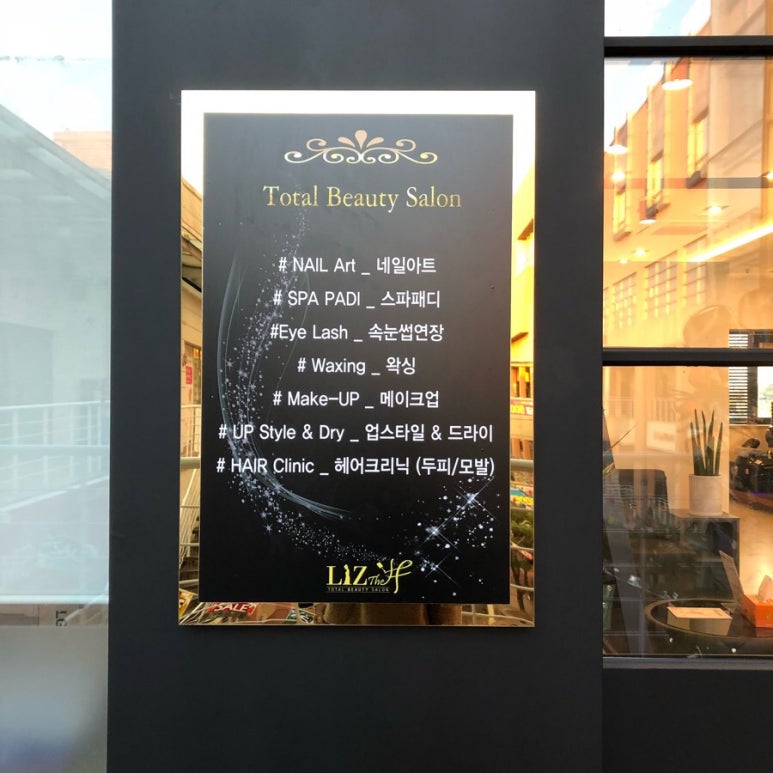 Total Beauty Salon
# NAIL Art _ 네일아트
# SPA PADI _ 스파패디
#Eye Lash _ 속눈썹연장
# Waxing _ 왁싱
# Make-UP _ 메이크업
# UP Style & Dry _ 업스타일 & 드라이
# HAIR Clinic _ 헤어크리닉 (두피/모발)
LIZ The
TOTAL BEAUTY SALON
SALE